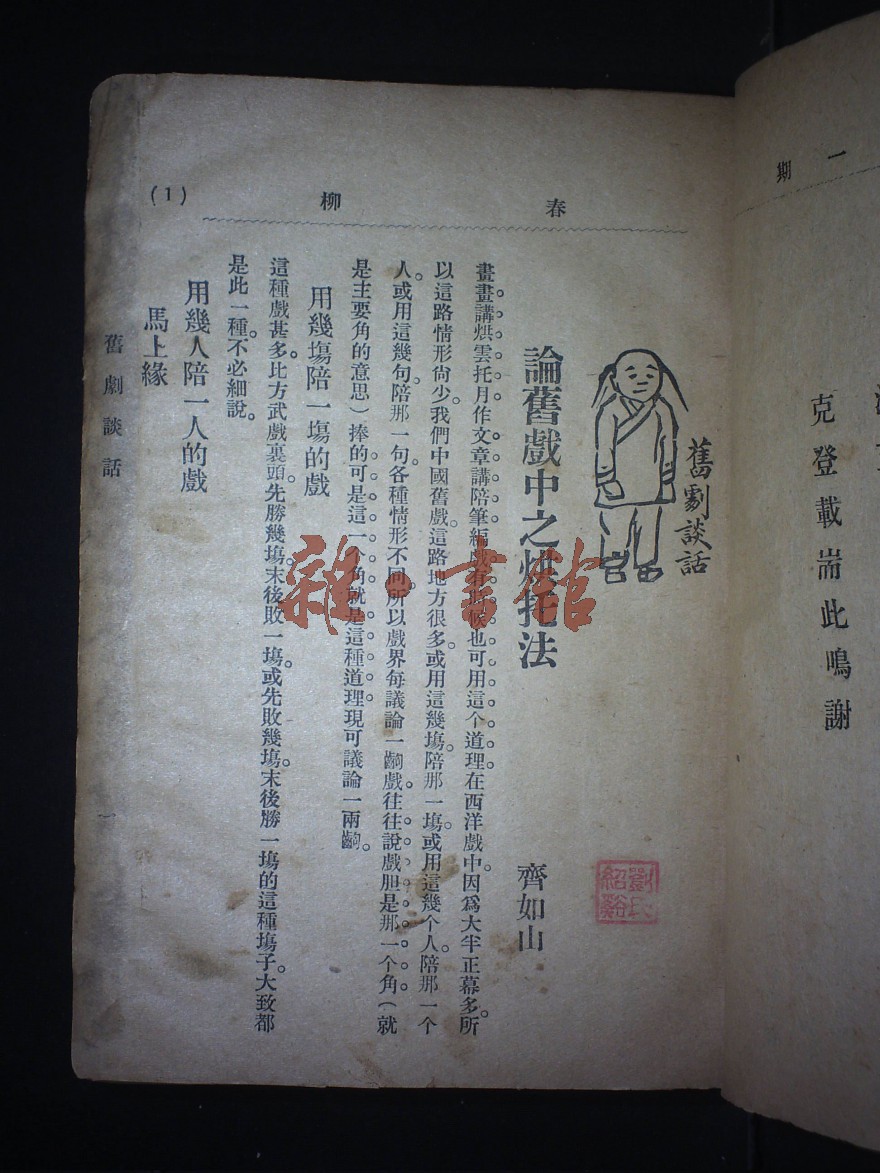 一期
克登載耑此鳴謝
春柳
(1)
舊劇談話
論舊戲中之烘托法
齊如山
劉氏紹谿
畫畫講烘雲托月作文章講陪筆編戲有時候也可用這个道理在西洋戲中因爲大半正幕多。所
以這路情形尙少。我們中國舊戲。這路地方很多。或用這幾塲。陪那一塲。或用這幾个人。陪那一个
人。或用這幾句。陪那一句。各種情形不同。所以戲界每議論一齣戲。往往說戲胆是那一个角。(就
是主要角的意思)捧的可是這一个角。就是這種道理。現可議論一兩齣。
用幾塲陪一塲的戲
這種戲甚多。比方武戲裏頭。先勝幾塲。末後敗一塲。或先敗幾塲。末後勝一塲的這種塲子。大致都
是此一種。不必細說。
用幾人陪一人的戲
馬上緣
舊劇談話
雜·書館